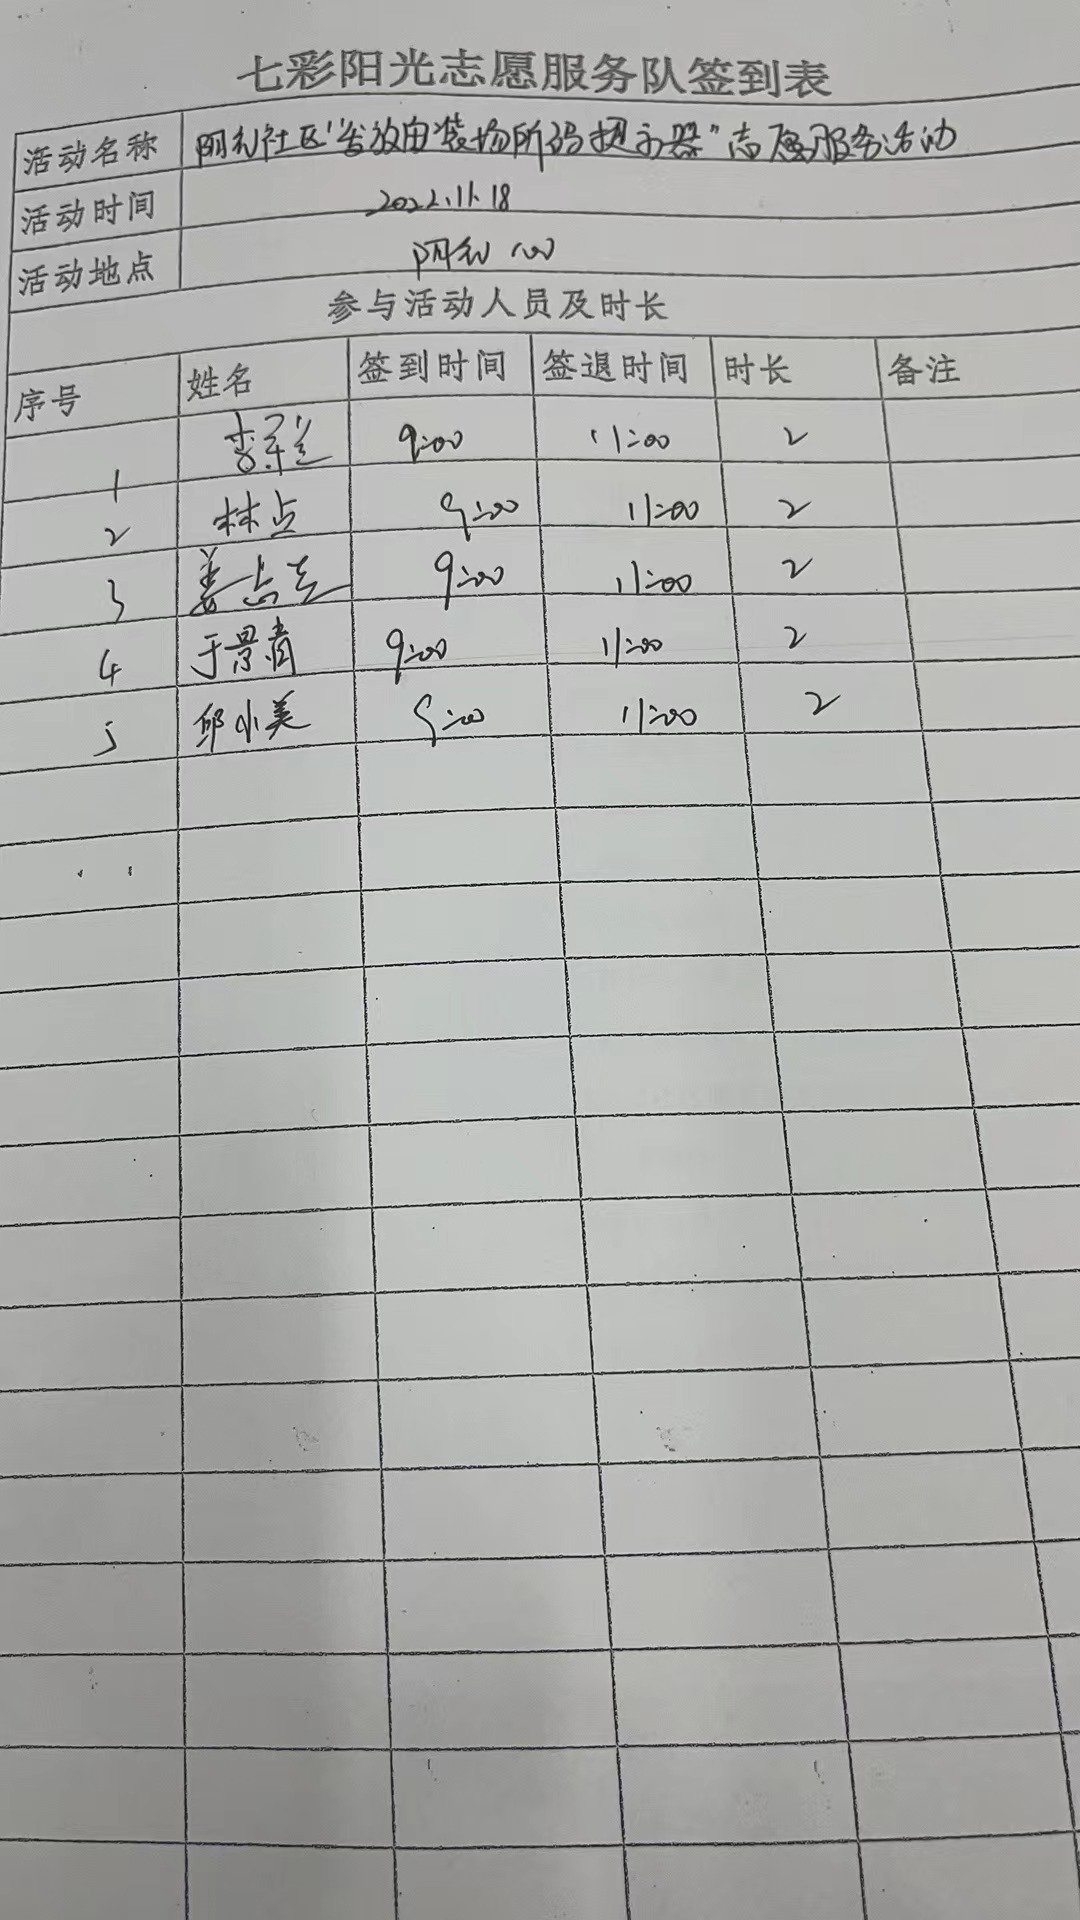 七彩阳光志愿服务队签到表
活动名称 社区"发放安装场所码提示器"志愿服务活动
活动时间 2022.11.18
活动地点
参与活动人员及时长
序号 姓名 签到时间 签退时间 时长 备注
1 9:00 11:00 2
2 林 9:00 11:00 2
3 姜 9:00 11:00 2
4 于景 9:00 11:00 2
5 邱小美 9:00 11:00 2